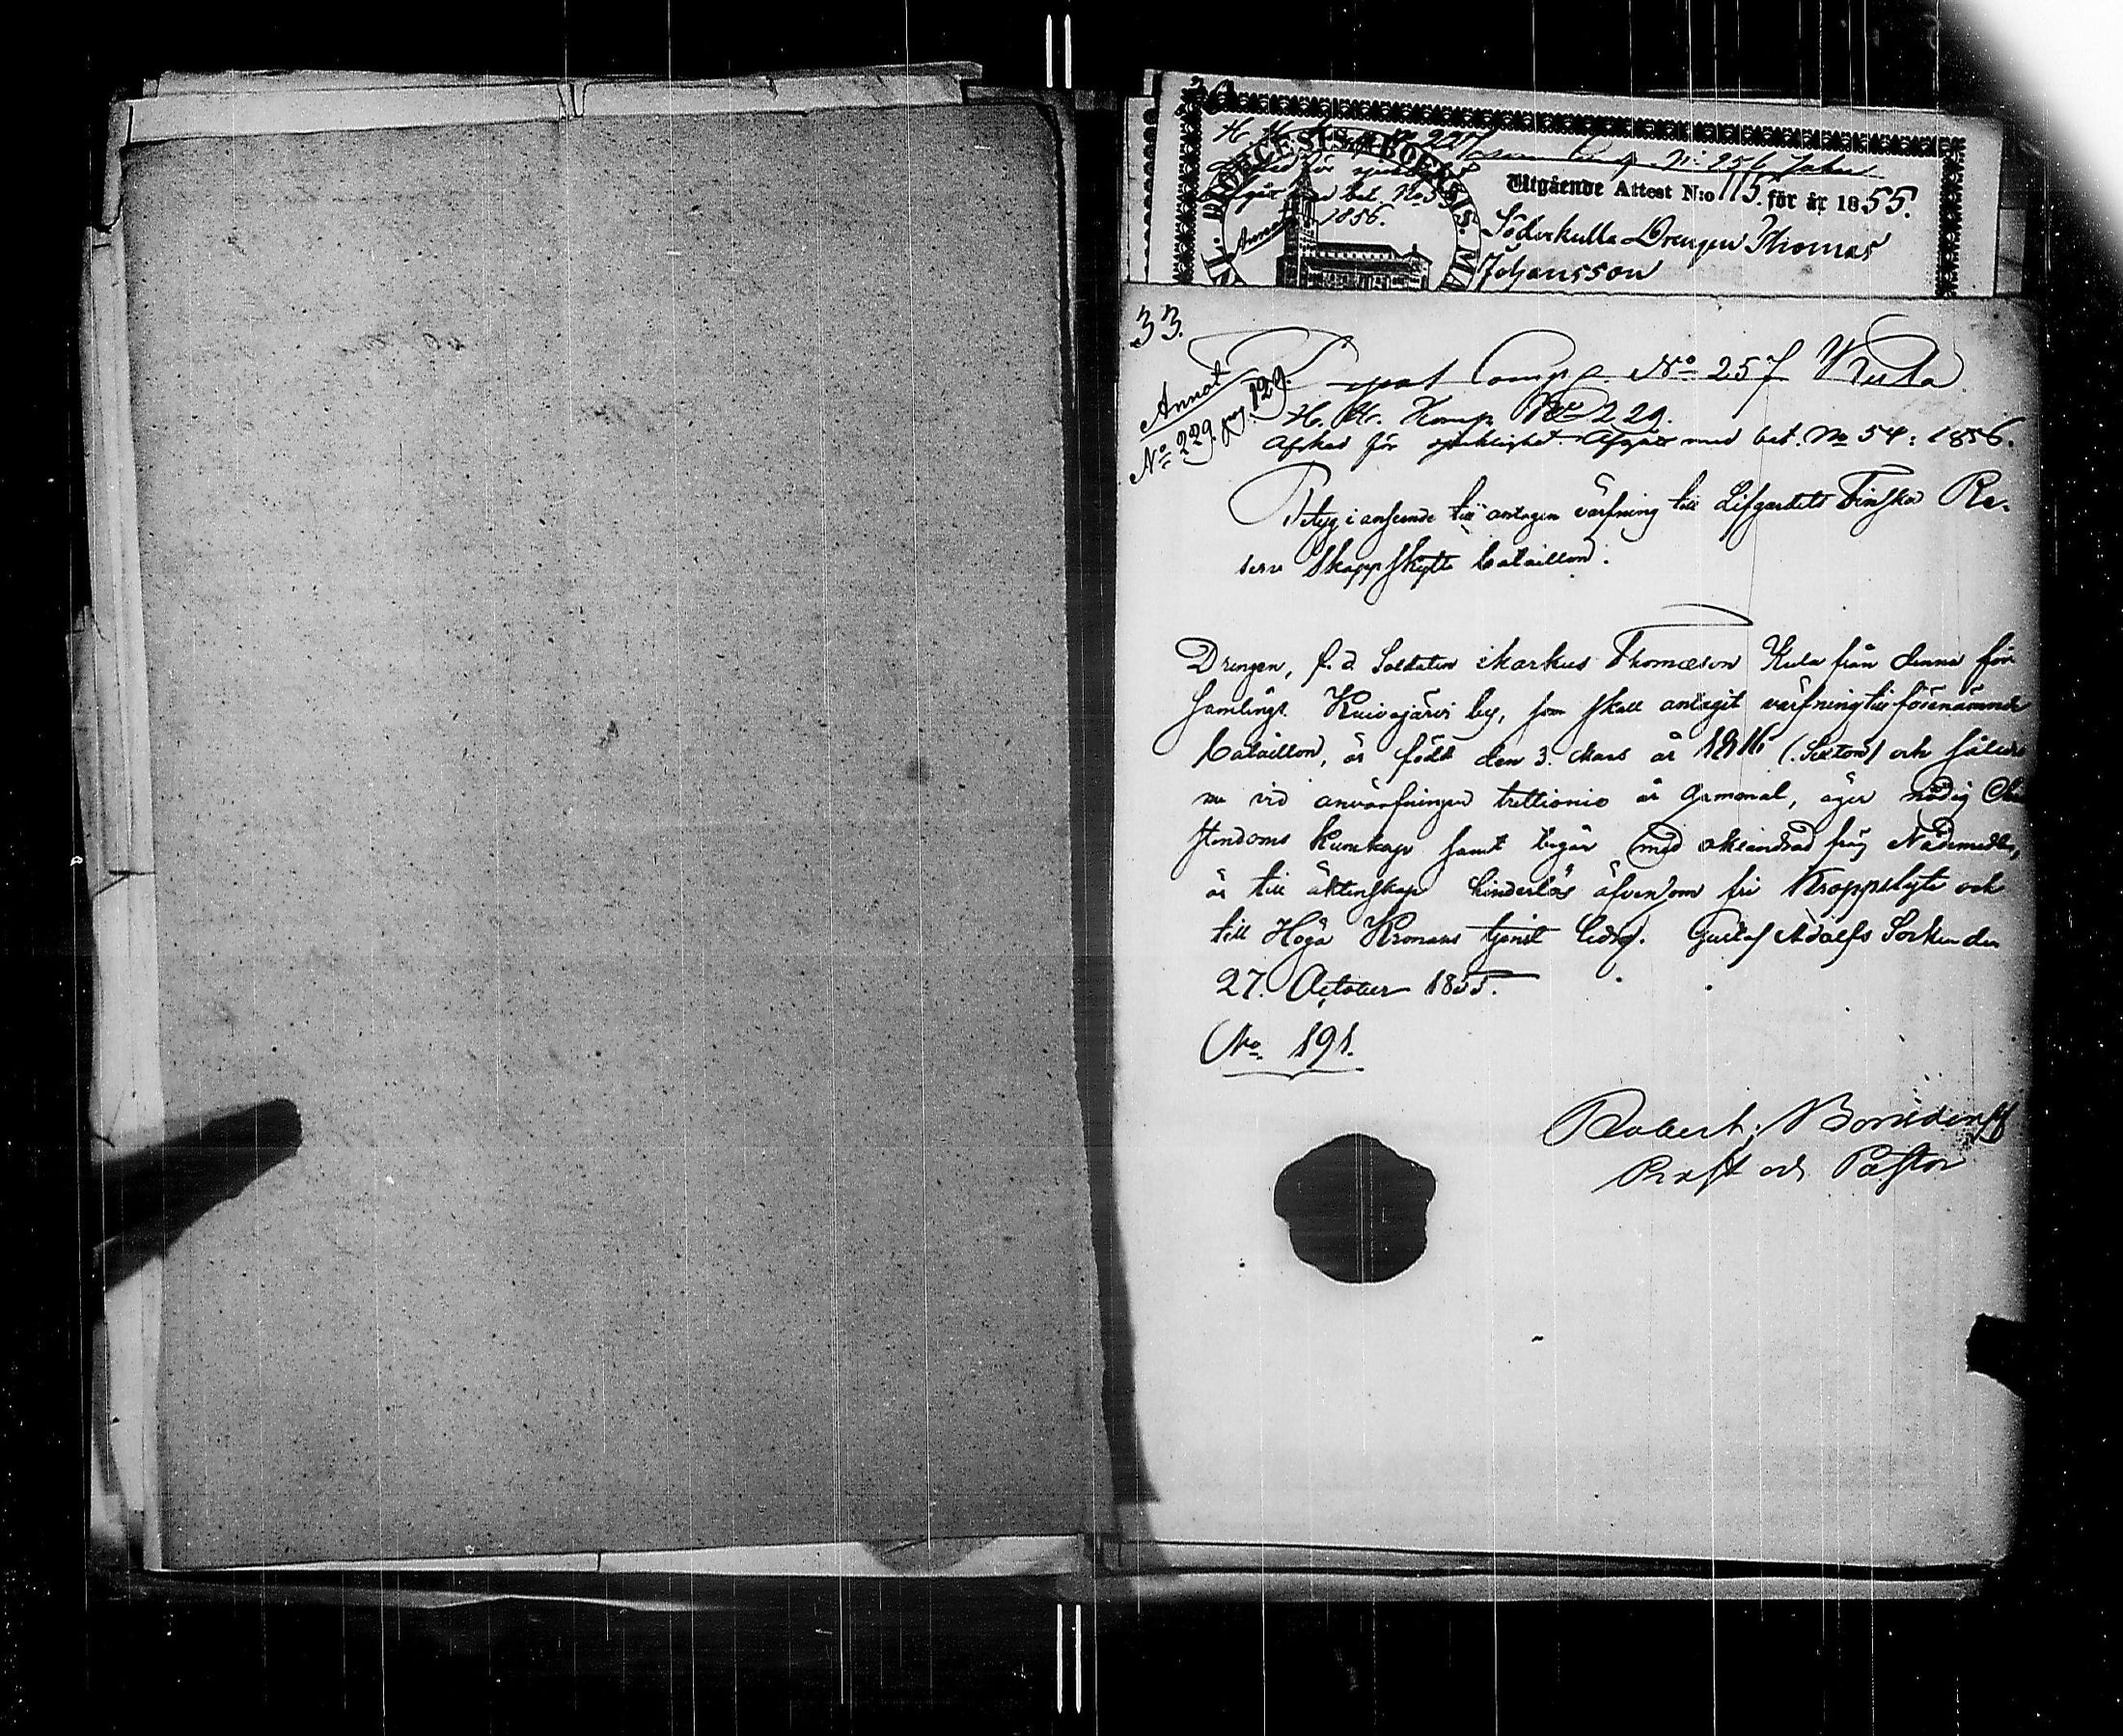 H. H. Komp. No 227
Comp. N: 256 Jakn
för
bet. No 5
Annot 1856.
DIOECESIS ABOENSIS.
Utgående Attest N:o 115. för år 1855.
Söderkulla Drengen Thomas
Johansson
33.
Annot
No 229. pag. 129.
Comp. No 257 Kula
H. H. Komp. No 229.
Afsked för sjuklighet. Afgår med bet. No 54: 1856.
Betyg i anseende till antagen värfning till Lifgardets Finska Re-
serv Skarpskytte bataillon.
Drengen, f.d. Soldaten Markus Thomasson Kula från denna för
samlings Kuivajärvi by, som skall antagit värfning till förenämnde
bataillon, är född den 3. Mars år 1816 (Sexton) och således
nu vid anvärfningen trettionio år gammal, äger nödig Chri
stendoms kunskap samt begår med oklandrad frejd Nådemedlen,
är till äktenskap hinderlös äfvensom fri Kroppslyte och
till Höga Kronans tjenst ledig. Gustaf Adolfs Socken den
27. October 1855.
No 191.
Robert Bonsdorff
Prost och Pastor